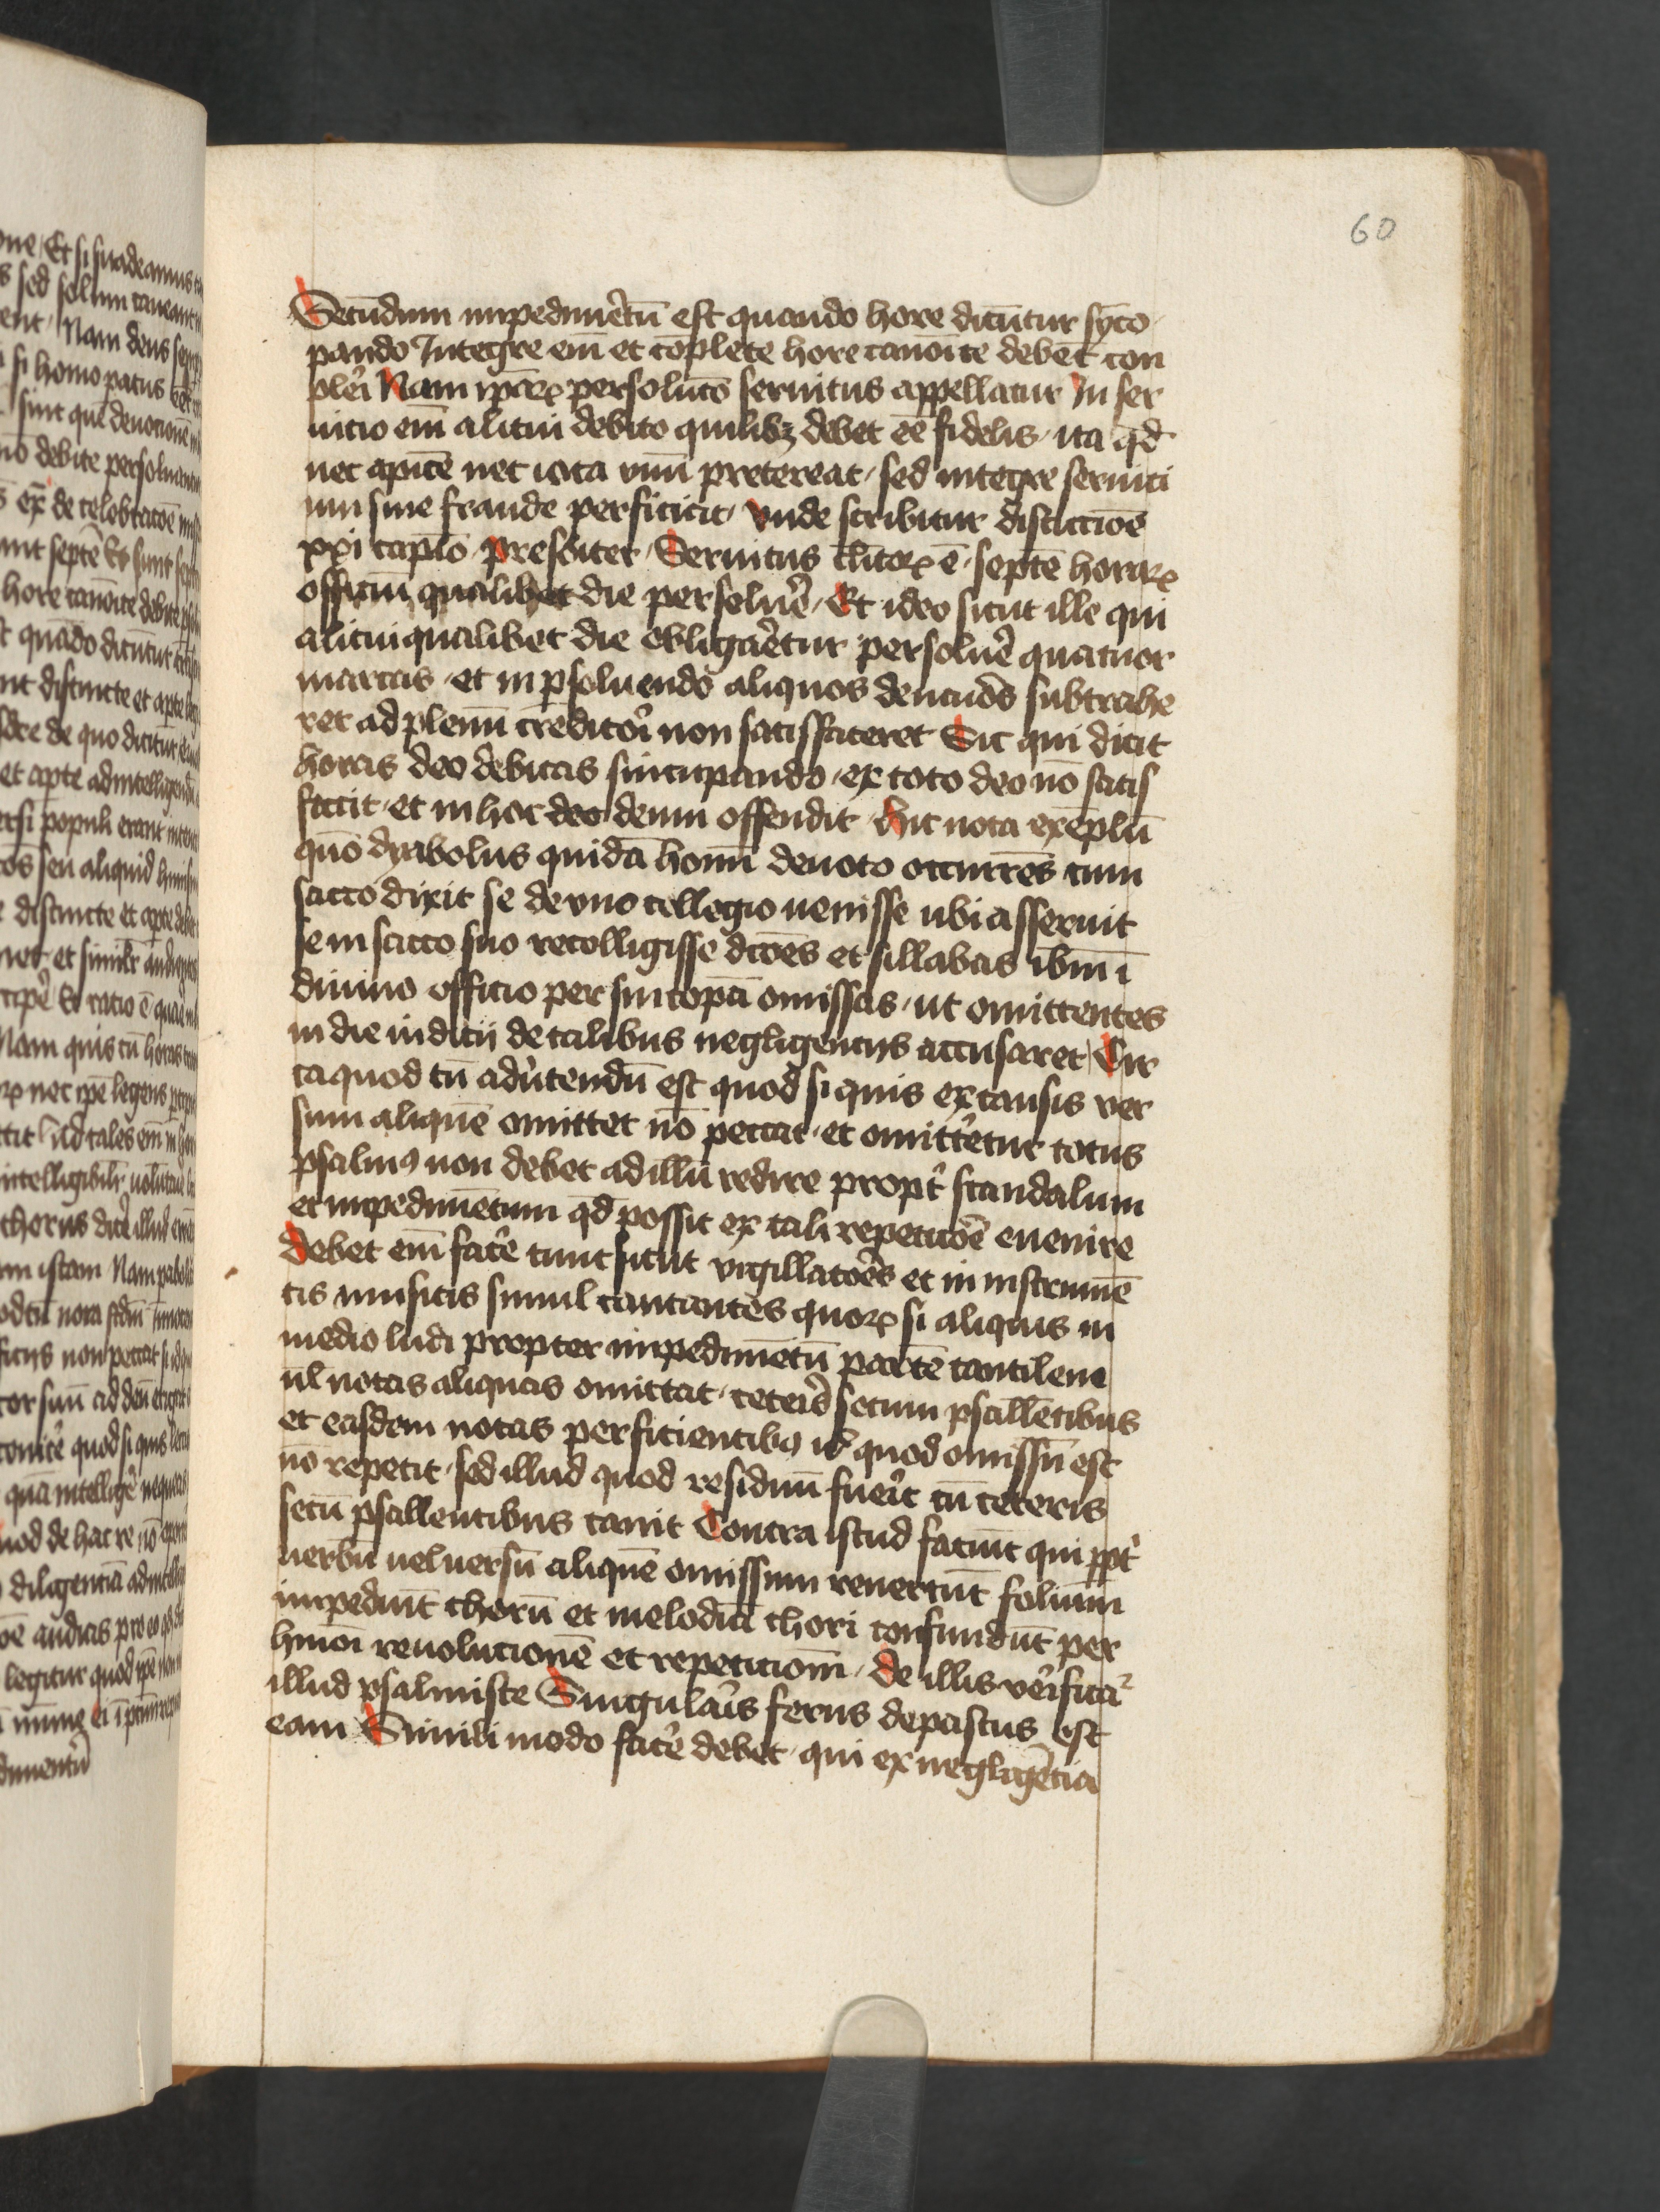 60
Secūdum impedimētū est quando hore dicūtur syco
pando Integre em̄ et cōplete hore canoīce debēt con
pleri Nam ip̄arꝝ persolutō seruitus appellatur In ser
uicio em̄ alicui debito quilibꝫ debet eē fidelis ita qd̄
nec apicē nec iota vnū pretereat sed integre seruici
um sine fraude perficicit vnde scribitur distīccioē
xxi capłō presbiter Seruitus cl̄icorꝝ ē septē horarꝝ
officiū qualibet die persoluē̓ Et ideo sicut ille qui
alicui qualibet die obligaē̓tur persoluē̓ quatuor
marcas et in ꝑsoluendo aliquos denarios subtrahe
ret ad plenū creditorī non satisffaceret Sic qui dicit
horas deo debitas sincupando ex toto deo nō satis
facit et in hoc deo deum offendit Hic nota exēplū
quō dyabolus quidā homī deuoto occurrēs cum
sacco dixit se de vno collegio uenisse ubi asseruit
se in sacco suo recolligisse dcōēs et sillabas ibm̄ ī
diuino officio per sincopā omissas ut omittentes
in die iudicij de talibus negligencijs accusaret Cir
ca quod tn̄ aduertendū est quod si quis ex causis ver
sum aliquē omittet nō peccat et omitteretur totus
psalmꝰ non debet ad illū redire propt̓ scandalum
et impedimētum qd̄ possit ex tali repeticōē euenire
debet em̄ facē̓ tunc sicut vigillatoēs et in instrumē
tis musicis simul cantantes quorꝝ si aliquis in
medio ludi propter impedimētū partē cantilene
ūl notas aliquas omittat ceteris secum psallētibus
et easdem notas perficientibꝰ id quod omissū est
nō repetit sed illud quod residuū fuerit cū ceteris
secū psallentibus canit Contra istud faciūt qui ꝓpt̓
uerbū uel uersū aliquē omissum reuertūt foliūm
impediūt chorū et melodiā chori confundūt per
hmōi reuolucionē et repeticionē de illis verificat̓
illud psalmiste Singularis ferus depastus est
eam Simili modo facē̓ debet qui ex negligētia